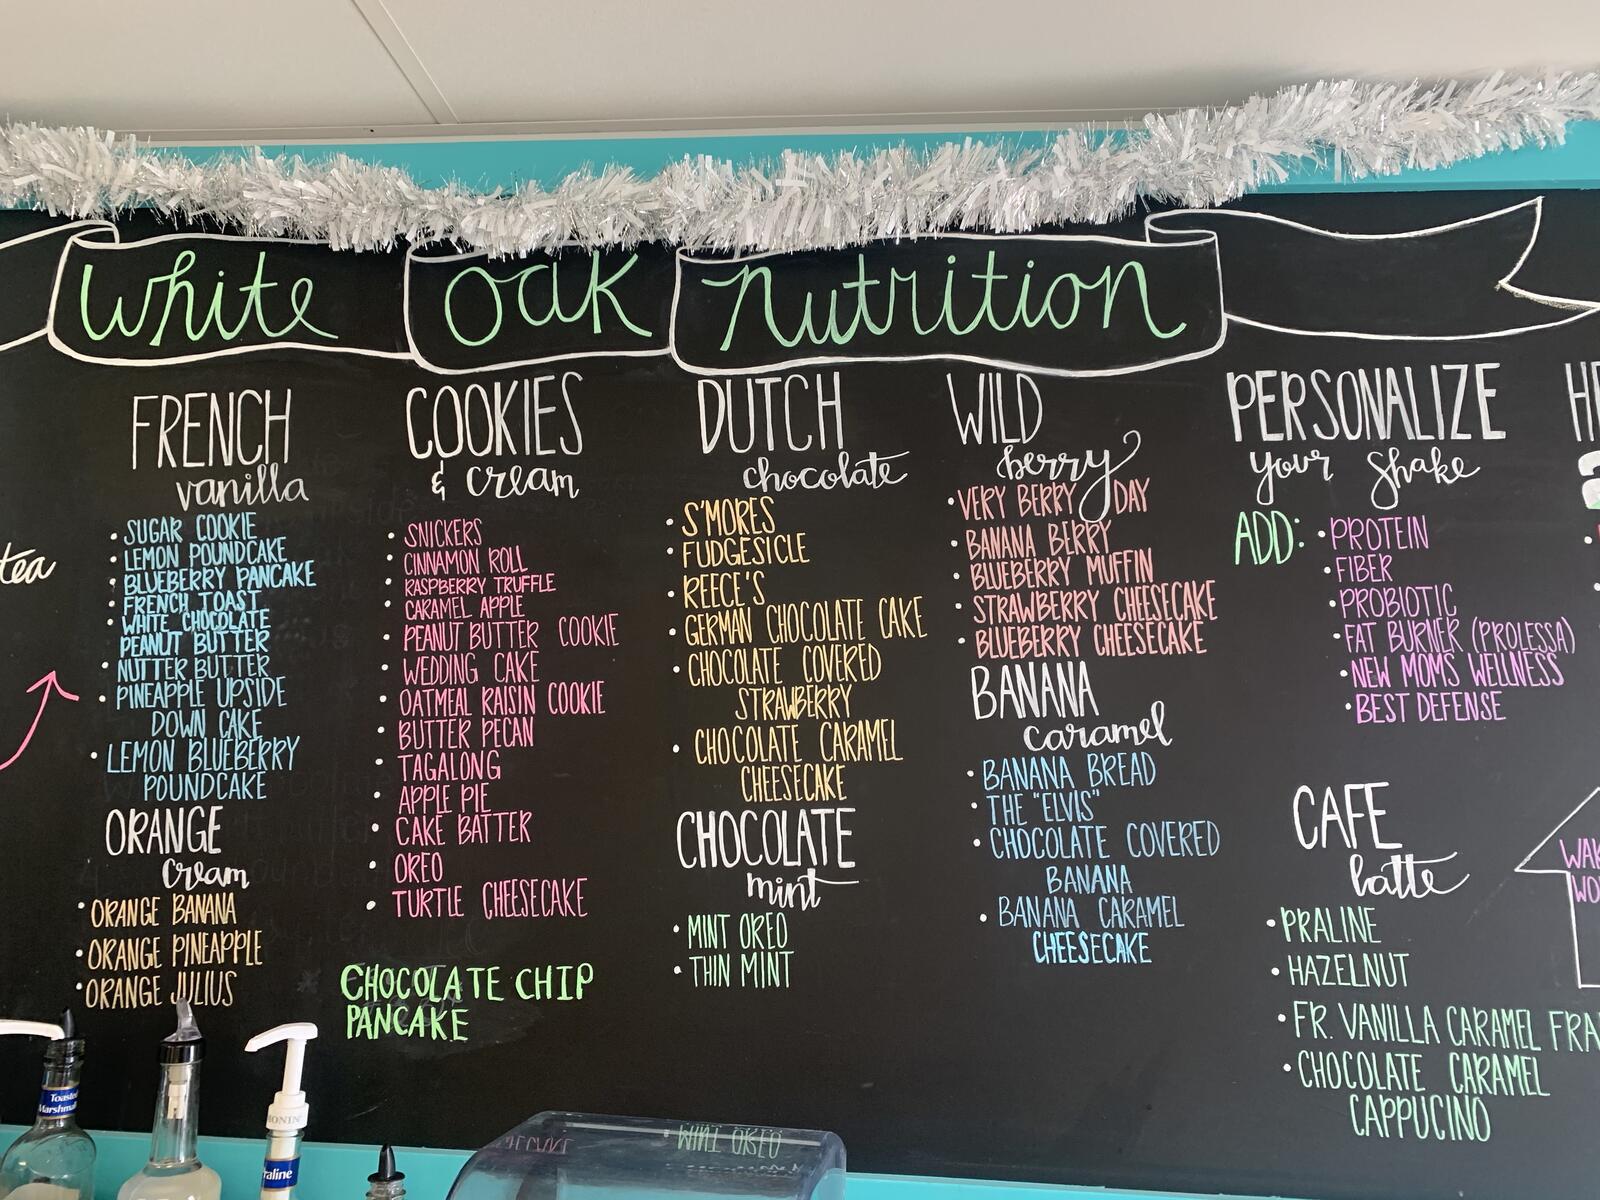 White Oak nutrition
tea
FRENCH
vanilla
SUGAR COOKIE
LEMON POUNDCAKE
BLUEBERRY PANCAKE
FRENCH TOAST
WHITE CHOCOLATE
PEANUT BUTTER
NUTTER BUTTER
PINEAPPLE UPSIDE
DOWN CAKE
LEMON BLUEBERRY
POUNDCAKE
ORANGE
cream
ORANGE BANANA
ORANGE PINEAPPLE
ORANGE JULIUS
COOKIES
& cream
SNICKERS
CINNAMON ROLL
RASPBERRY TRUFFLE
CARAMEL APPLE
PEANUT BUTTER COOKIE
WEDDING CAKE
OATMEAL RAISIN COOKIE
BUTTER PECAN
TAGALONG
APPLE PIE
CAKE BATTER
OREO
TURTLE CHEESECAKE
CHOCOLATE CHIP
PANCAKE
DUTCH
chocolate
S'MORES
FUDGESICLE
REECE'S
GERMAN CHOCOLATE CAKE
CHOCOLATE COVERED
STRAWBERRY
CHOCOLATE CARAMEL
CHEESECAKE
CHOCOLATE
mint
MINT OREO
THIN MINT
WILD
berry
VERY BERRY DAY
BANANA BERRY
BLUEBERRY MUFFIN
STRAWBERRY CHEESECAKE
BLUEBERRY CHEESECAKE
BANANA
caramel
BANANA BREAD
THE "ELVIS"
CHOCOLATE COVERED
BANANA
BANANA CARAMEL
CHEESECAKE
PERSONALIZE
your shake
ADD:
PROTEIN
FIBER
PROBIOTIC
FAT BURNER (PROLESSA)
NEW MOMS WELLNESS
BEST DEFENSE
CAFE
latte
PRALINE
HAZELNUT
FR. VANILLA CARAMEL FRA
CHOCOLATE CARAMEL
CAPPUCINO
HE
WAK
WO
Toasted
Marshma
MONIN
raline